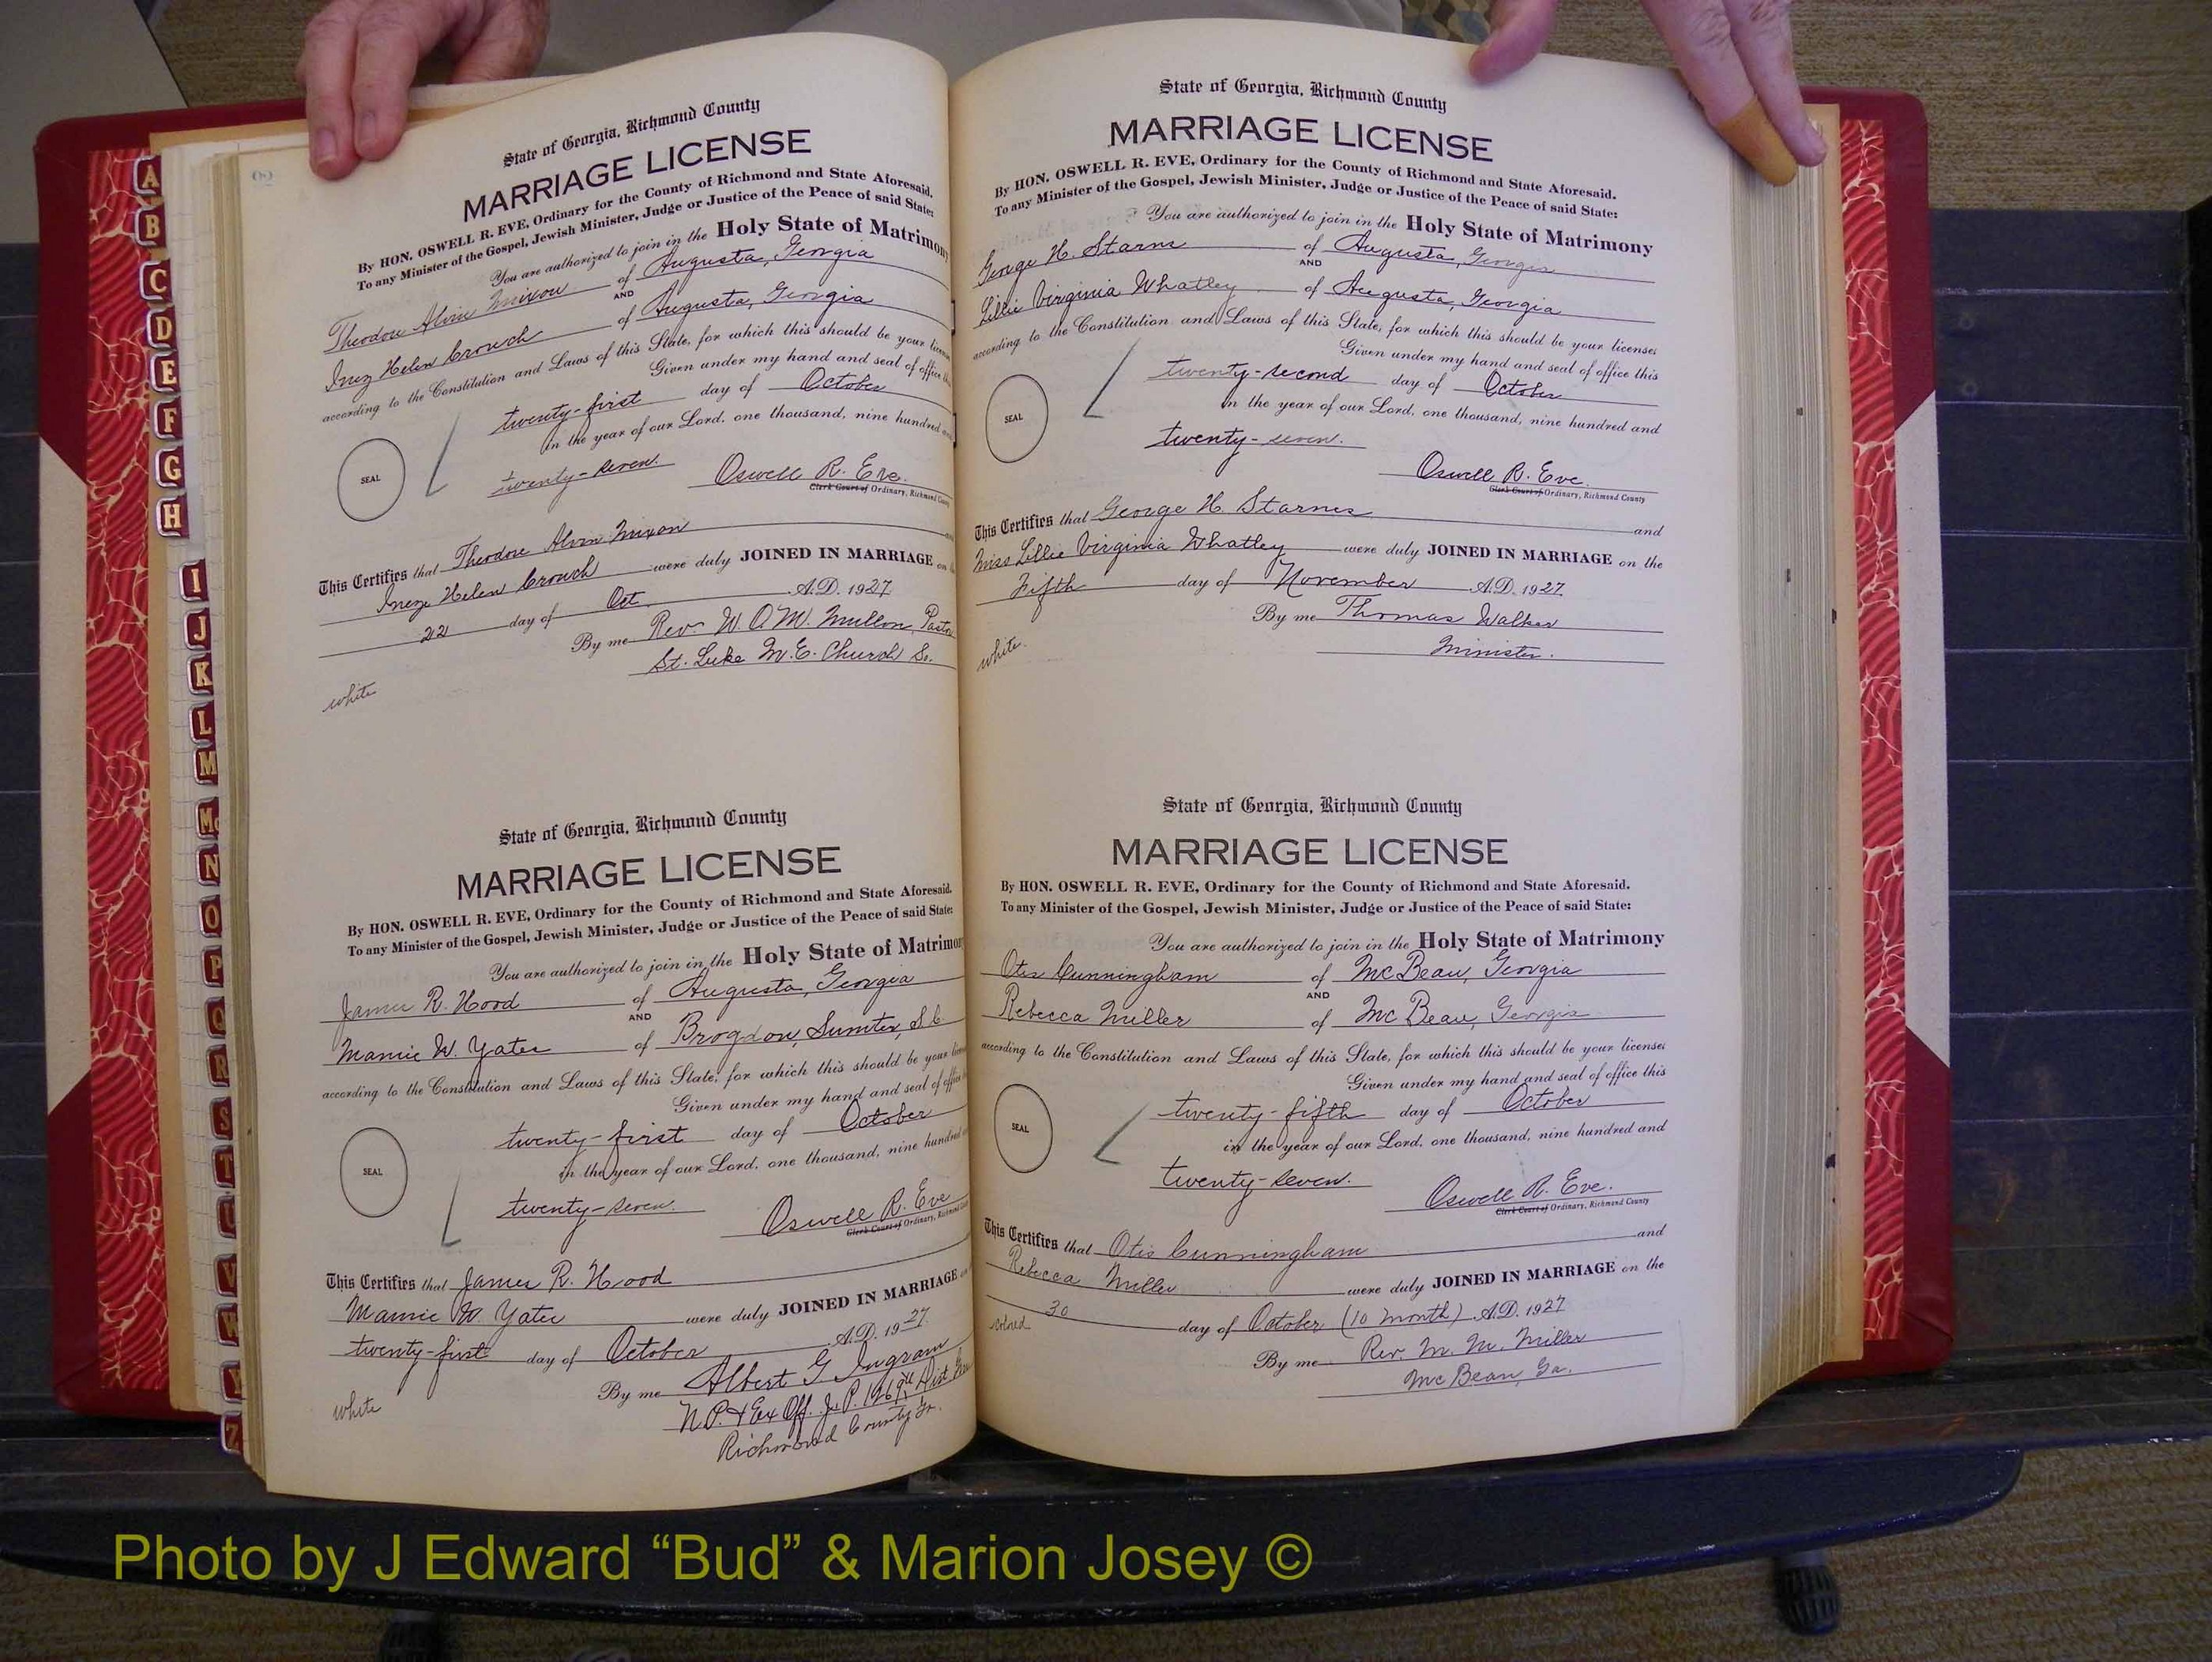 A
B
C
D
E
F
G
H
I
J
K
L
M
Mc
N
O
P
Q
R
S
T
U
V
W
Y
Z
State of Georgia, Richmond County
MARRIAGE LICENSE
By HON. OSWELL R. EVE, Ordinary for the County of Richmond and State Aforesaid.
To any Minister of the Gospel, Jewish Minister, Judge or Justice of the Peace of said State:
You are authorized to join in the Holy State of Matrimony
Theodore Alvin Mixon of Augusta, Georgia
AND
Inez Helen Crouch of Augusta, Georgia
according to the Constitution and Laws of this State, for which this should be your license
Given under my hand and seal of office this
twenty-first day of October
in the year of our Lord, one thousand, nine hundred and
SEAL
twenty-seven. Oswell R. Eve.
Clerk Court of Ordinary, Richmond County
This Certifies that Theodore Alvin Mixon
Inez Helen Crouch were duly JOINED IN MARRIAGE on
22 day of Oct. A.D. 1927.
By me Rev. W. O. M. Pastor
St. Luke M.E. Church So.
white
State of Georgia, Richmond County
MARRIAGE LICENSE
By HON. OSWELL R. EVE, Ordinary for the County of Richmond and State Aforesaid.
To any Minister of the Gospel, Jewish Minister, Judge or Justice of the Peace of said State:
You are authorized to join in the Holy State of Matrimony
James R. Hood of Augusta, Georgia
AND
Mamie W. Yates of Brogdon, Sumter, S.C.
according to the Constitution and Laws of this State, for which this should be your license
Given under my hand and seal of office
twenty-first day of October
in the year of our Lord, one thousand, nine hundred
SEAL
twenty-seven. Oswell R. Eve
Clerk Court of Ordinary, Richmond
This Certifies that James R. Hood
Mamie W. Yates were duly JOINED IN MARRIAGE
twenty-first day of October A.D. 1927.
By me Albert G Ingram
N.P. & Ex Off. J.P. Dist
Richmond County Ga.
white
State of Georgia, Richmond County
MARRIAGE LICENSE
By HON. OSWELL R. EVE, Ordinary for the County of Richmond and State Aforesaid.
To any Minister of the Gospel, Jewish Minister, Judge or Justice of the Peace of said State:
You are authorized to join in the Holy State of Matrimony
George H. Starnes of Augusta, Georgia
AND
Lillie Virginia Whatley of Augusta, Georgia
according to the Constitution and Laws of this State, for which this should be your licenses
Given under my hand and seal of office this
twenty-second day of October
in the year of our Lord, one thousand, nine hundred and
SEAL
twenty-seven. Oswell R. Eve.
Clerk Court of Ordinary, Richmond County
This Certifies that George H. Starnes and
Miss Lillie Virginia Whatley were duly JOINED IN MARRIAGE on the
Fifth day of November A.D. 1927.
By me Thomas Walker
Minister.
white.
State of Georgia, Richmond County
MARRIAGE LICENSE
By HON. OSWELL R. EVE, Ordinary for the County of Richmond and State Aforesaid.
To any Minister of the Gospel, Jewish Minister, Judge or Justice of the Peace of said State:
You are authorized to join in the Holy State of Matrimony
Otis Cunningham of McBean, Georgia
AND
Rebecca Miller of McBean, Georgia
according to the Constitution and Laws of this State, for which this should be your licenses
Given under my hand and seal of office this
twenty-fifth day of October
in the year of our Lord, one thousand, nine hundred and
SEAL
twenty-seven. Oswell R. Eve.
Clerk Court of Ordinary, Richmond County
This Certifies that Otis Cunningham and
Rebecca Miller were duly JOINED IN MARRIAGE on the
30 day of October (10 month) A.D. 1927
colored
By me Rev. M. M. Miller
McBean, Ga.
Photo by J Edward “Bud” & Marion Josey ©